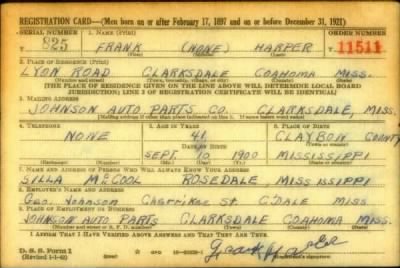 REGISTRATION CARD—(Men born on or after February 17, 1897 and on or before December 31, 1921)
SERIAL NUMBER 1. NAME (Print) ORDER NUMBER
U 825 FRANK (NONE) HARPER 11511
(First) (Middle) (Last)
2. PLACE OF RESIDENCE (Print)
LYON ROAD CLARKSDALE COAHOMA MISS.
(Number and street) (Town, township, village, or city) (County) (State)
[THE PLACE OF RESIDENCE GIVEN ON THE LINE ABOVE WILL DETERMINE LOCAL BOARD
JURISDICTION; LINE 2 OF REGISTRATION CERTIFICATE WILL BE IDENTICAL]
3. MAILING ADDRESS
JOHNSON AUTO PARTS CO. CLARKSDALE, MISS.
[Mailing address if other than place indicated on line 2. If same insert word same]
4. TELEPHONE 5. AGE IN YEARS 6. PLACE OF BIRTH
NONE 41 CLAYBON COUNTY
DATE OF BIRTH (Town or county)
SEPT. 10 1900 MISSISSIPPI
(Exchange) (Number) (Mo.) (Day) (Yr.) (State or country)
7. NAME AND ADDRESS OF PERSON WHO WILL ALWAYS KNOW YOUR ADDRESS
SILLA McCOOL ROSEDALE, MISSISSIPPI
8. EMPLOYER'S NAME AND ADDRESS
GEO. JOHNSON ST. C'DALE MISS
9. PLACE OF EMPLOYMENT OR BUSINESS
JOHNSON AUTO PARTS CLARKSDALE COAHOMA MISS.
(Number and street or R. F. D. number) (Town) (County) (State)
I AFFIRM THAT I HAVE VERIFIED ABOVE ANSWERS AND THAT THEY ARE TRUE.
D. S. S. Form 1
(Revised 1-1-42) (over)